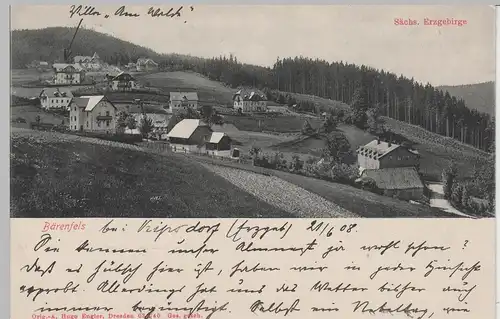 Villa „Am Walde"
Sächs. Erzgebirge
Bärenfels bei Kipsdorf (Erzgeb) 21/6 08.
Sie kennen unser Almen ja wohl schon?
Daß es hübsch hier ist, haben wir in jeder Hinsicht
erprobt. Allerdings hat uns das Wetter bisher auch
immer begünstigt. Selbst ein Nebeltag, wie
Orig.-A. Hugo Engler, Dresden Ges. gesch.